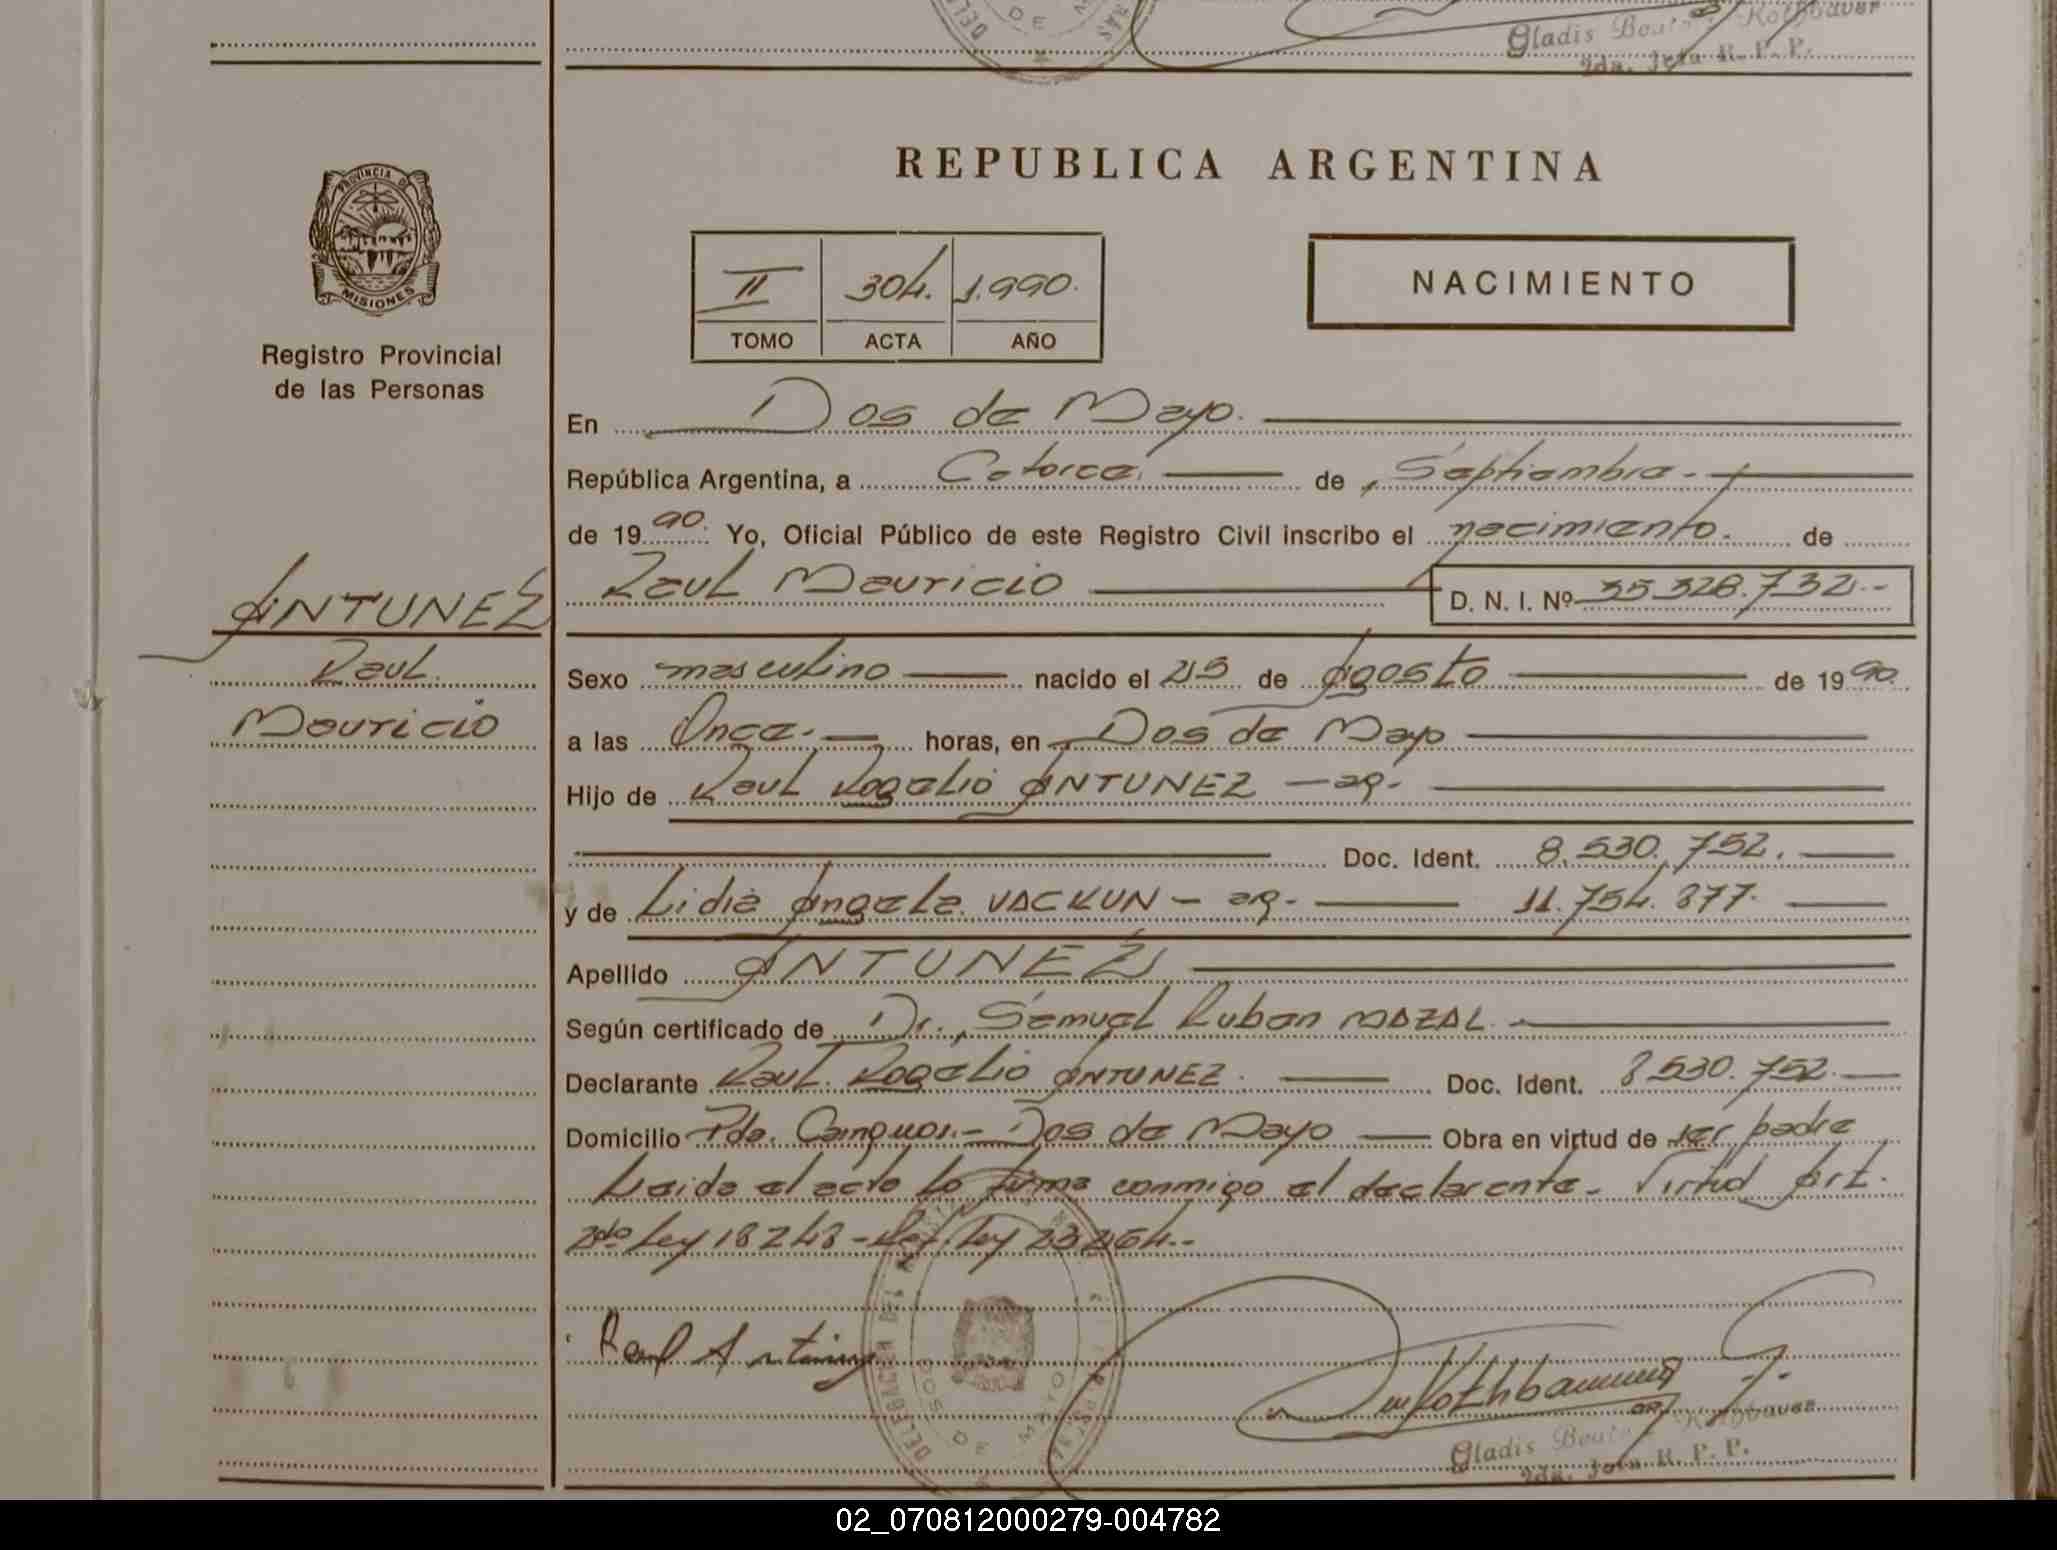 Gladis Beatr Kothbauer
2da. Jefa R. P. P.
DE
REPUBLICA ARGENTINA
PROVINCIA DE
MISIONES
Registro Provincial
de las Personas
II 304. 1.990.
TOMO ACTA AÑO
NACIMIENTO
En Dos de Mayo.
República Argentina, a Catorce. de Septiembre.
de 1990. Yo, Oficial Público de este Registro Civil inscribo el nacimiento. de
Raul Mauricio D. N. I. Nº 35.328.732.-
ANTUNEZ
Raul
Mauricio
Sexo masculino nacido el 25 de Agosto de 1990.
a las Once. horas, en Dos de Mayo
Hijo de Raul Rogelio ANTUNEZ - ar.
Doc. Ident. 8.530.752.
y de Lidia Angela VACKUN - ar. 11.754.877.
Apellido ANTUNEZ
Según certificado de Dr. Samuel Ruben MAZAL.
Declarante Raul Rogelio ANTUNEZ. Doc. Ident. 8.530.752.
Domicilio Pda. - Dos de Mayo Obra en virtud de ser padre
Leida el acta la firma conmigo el declarante. Virtud Art.
2do Ley 18248 - Ley 23264.-
Raul
DELEGACION DEL
DOS DE MAYO
Kothbauer
Gladis Beatr Kothbauer
2da. Jefa R. P. P.
02_070812000279-004782